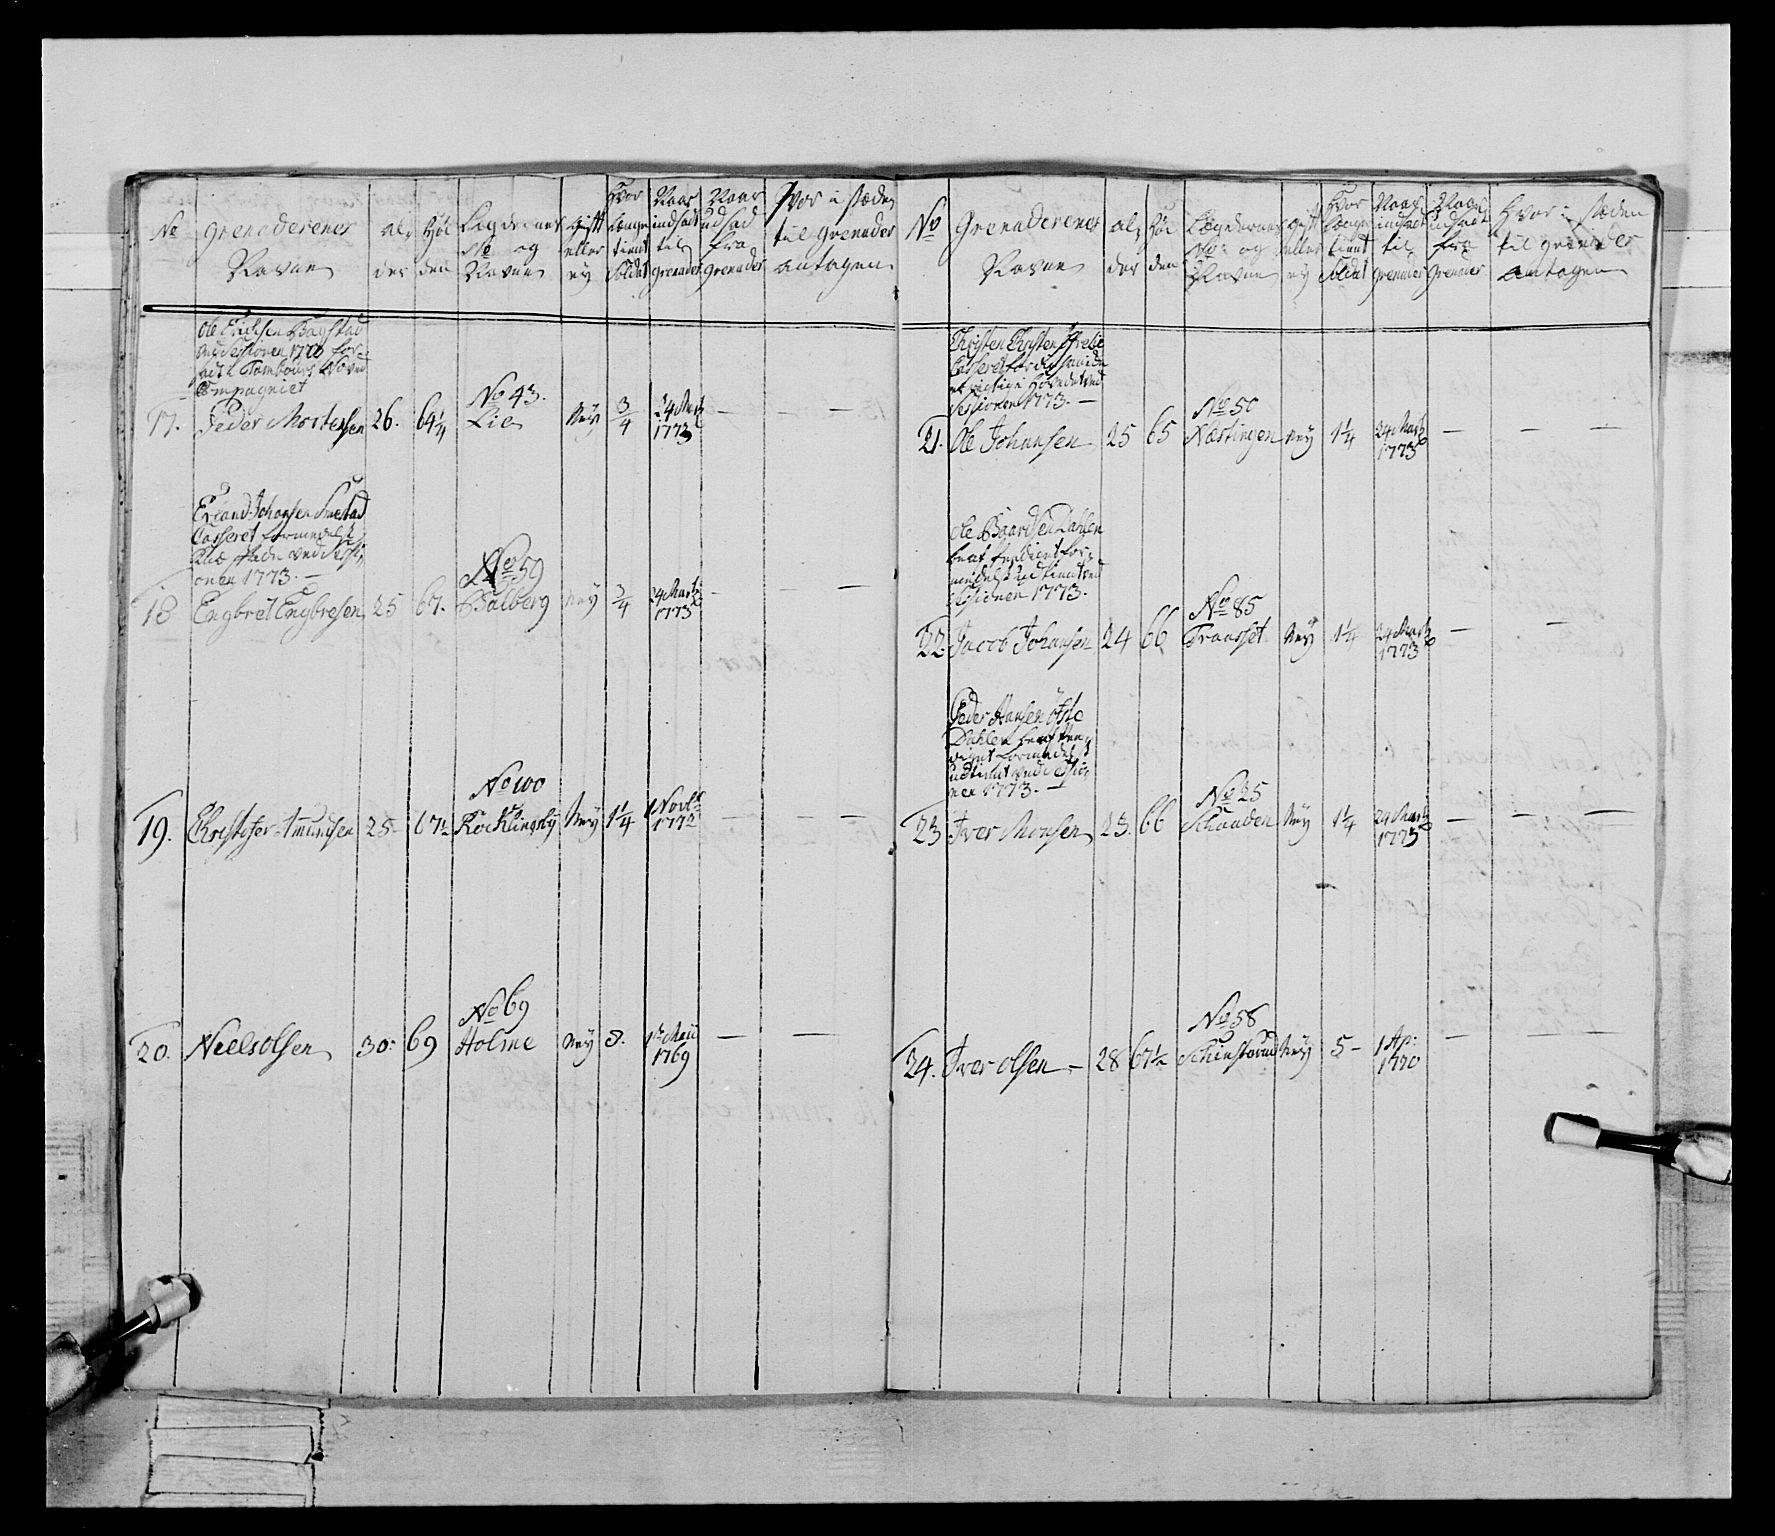 No
Grenaderenes
Navne
al,
der
Høi
den
Lægdernes
No og
Navne
Gift
eller
ey
Hvor
længe
tient
Soldat
Naar
indsadt
til
Grenader
Naar
udsad
fra
Grenader
Hvor i stæden
til Grenader
antagen
Ole Erichsen Bagstad
ved Sessionen 1770 for-
sadt Tambour ved
Compagniet
17.
Peder Mortensen
26.
64 1/4
No 43.
Lie
Ney
3/4
24 Marty
1773
— — —
Erland Johansen
Casseret formedelst
ved Sessi,
onen 1773. —
18
Engbret Engbresen
25
67.
No 59
Balberg
Ney
3/4
24 Marty
1773
— — —
19.
Christopher Amundsen
25
67 1/2
No 100
Rocklingsby
Ney
1 1/4
1 Novbr
1772
— — —
20.
Neels Olsen
30.
69
No 69
Holme
Ney
8.
1ste Maii
1769
— —
No
Grenaderenes
Navne
al,
der
Høi
den
Lægdernes
No og
Navne
Gift
eller
ey
Hvor
længe
tient
Soldat
Naar
indsadt
til
Grenader
Naar
indsadt
fra
Grenader
Hvor i stæden
til Grenader
antagen
Christen Christensen
Casseret
ved
Sessionen 1773. —
21.
Ole Johansen
25
65
No 50
Næstingen
ney
1 1/4
24 Marty
1773
— — —
Ole Baardsen Dahlen
for,
medelst udtient ved
Sessionen 1773.
22
Jacob Johansen
24
66
No 85
Traaset
Ney
1 1/4
24 Marty
1773
— — —
Peder Hansen
Dahlen
formedelst
udtient ved Sessio,
nen 1773. —
23
Iver Monsen
23.
66
No 25
Schauden
Ney
1 1/4
24 Marty
1773
— — —
24.
Iver Olsen —
28
67 1/2
No 58
Ney
5 —
1 Ap:
1770
— — —